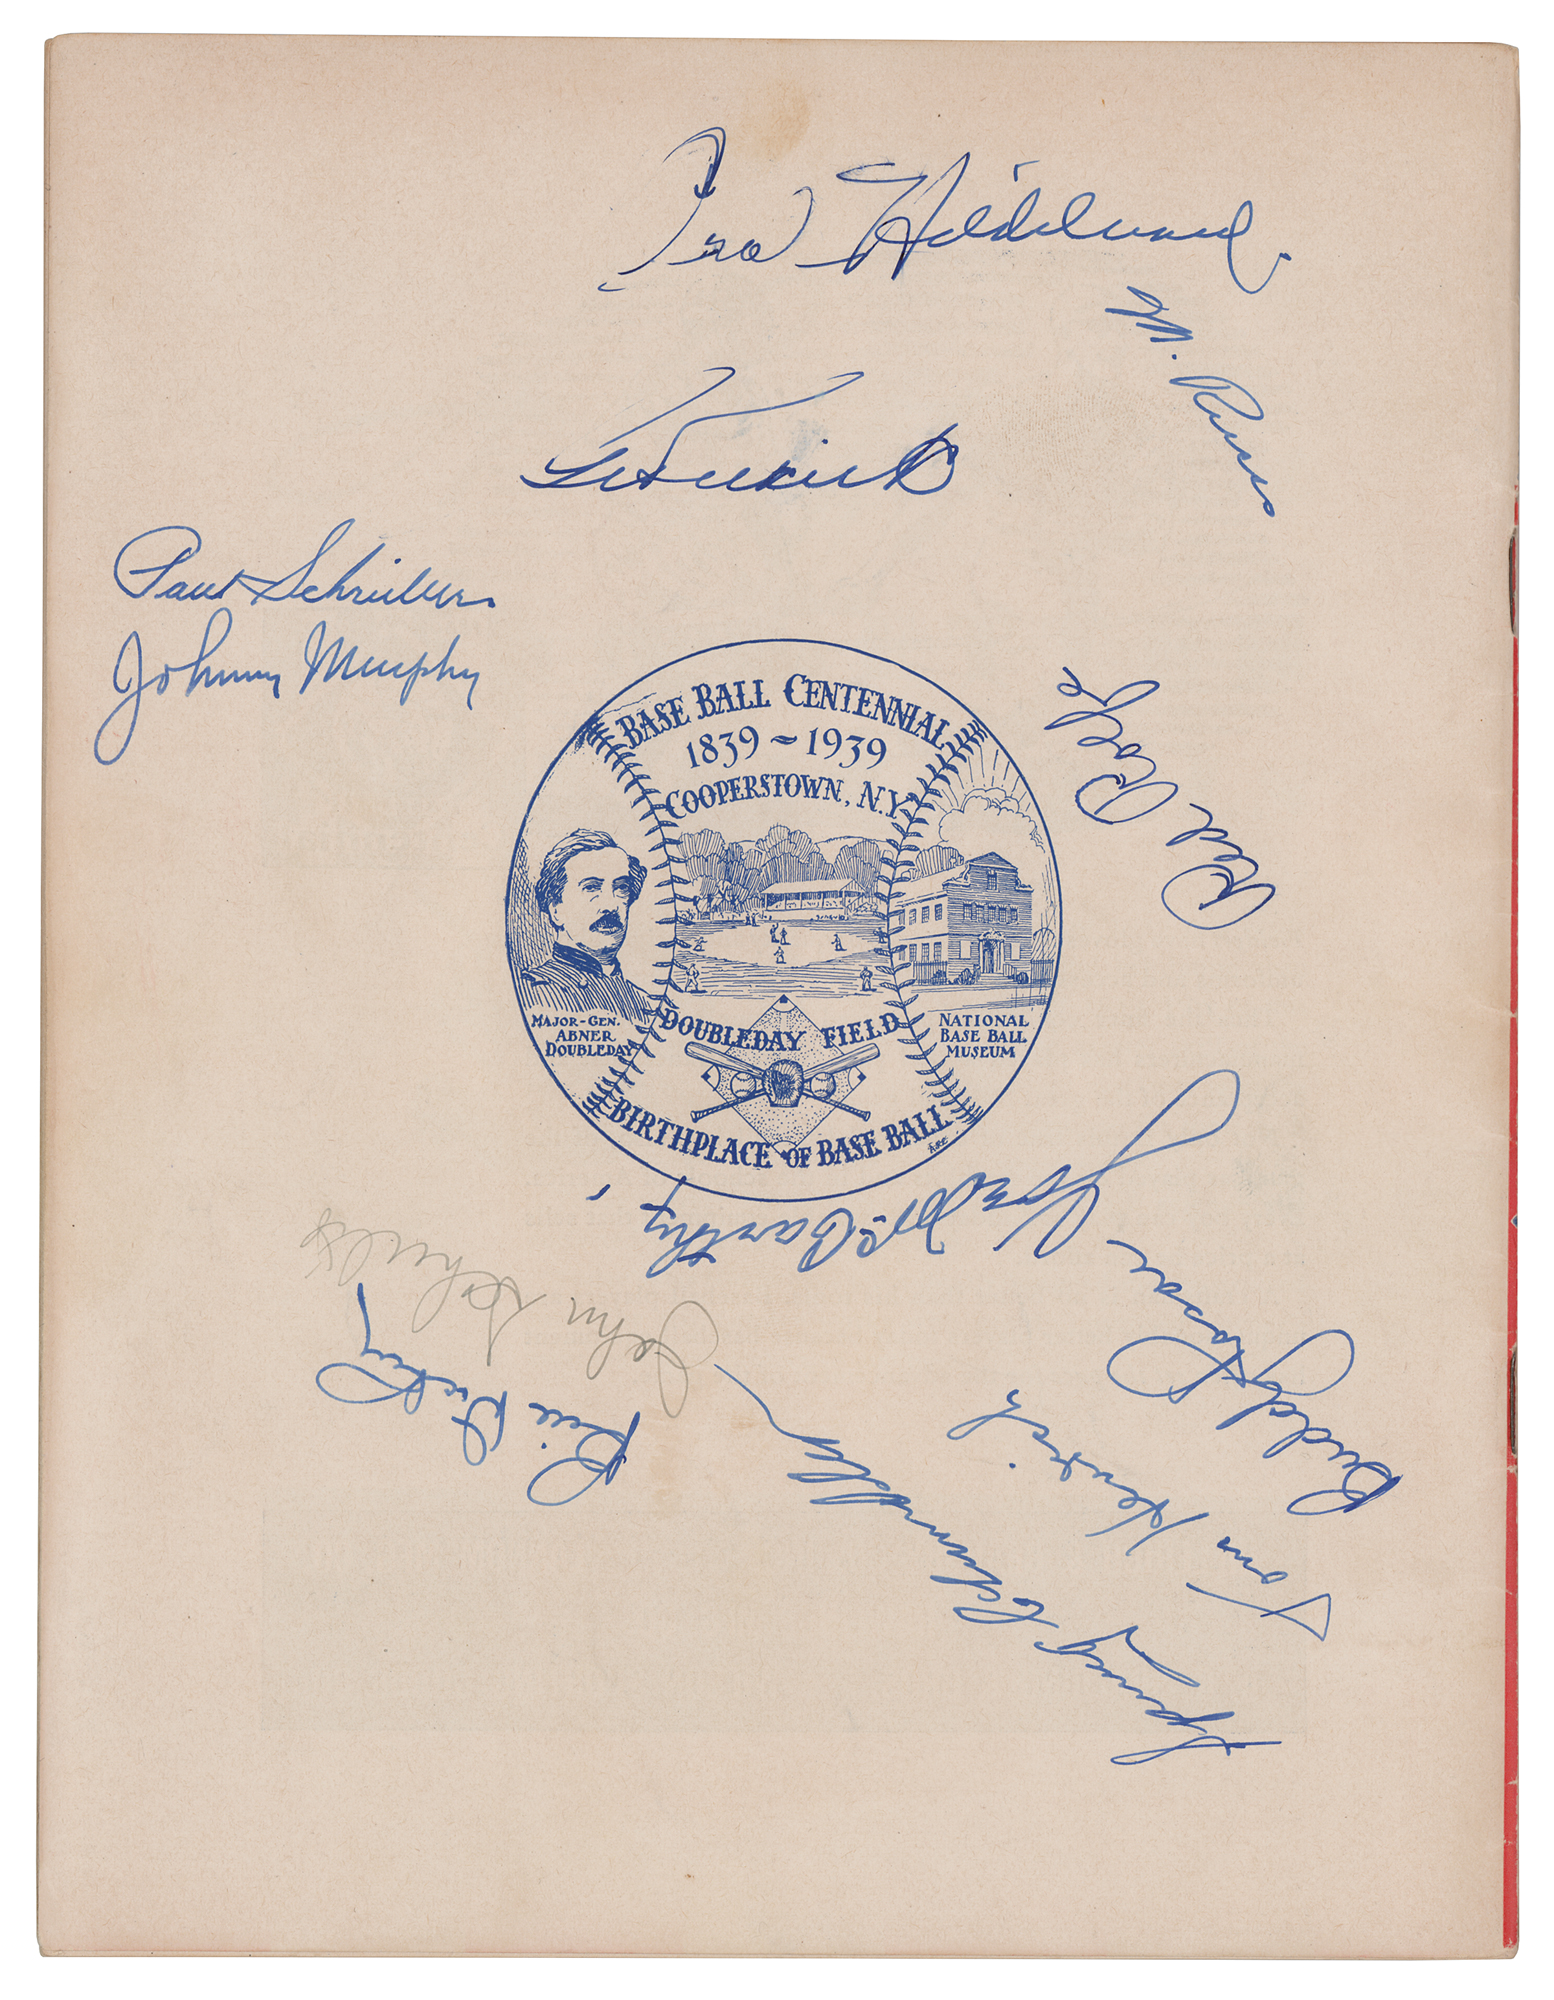 M. Russo
Paul Schreiber
Johnny Murphy
Red Rolfe
BASE BALL CENTENNIAL
1839 ~ 1939
COOPERSTOWN, N.Y.
MAJOR-GEN.
ABNER
DOUBLEDAY
DOUBLEDAY FIELD
NATIONAL
BASE BALL
MUSEUM
BIRTHPLACE OF BASE BALL
Joe McCarthy
John Schulte
Bill Dickey
Buddy Rosar
Tom Henrich
Johnny Schmidt